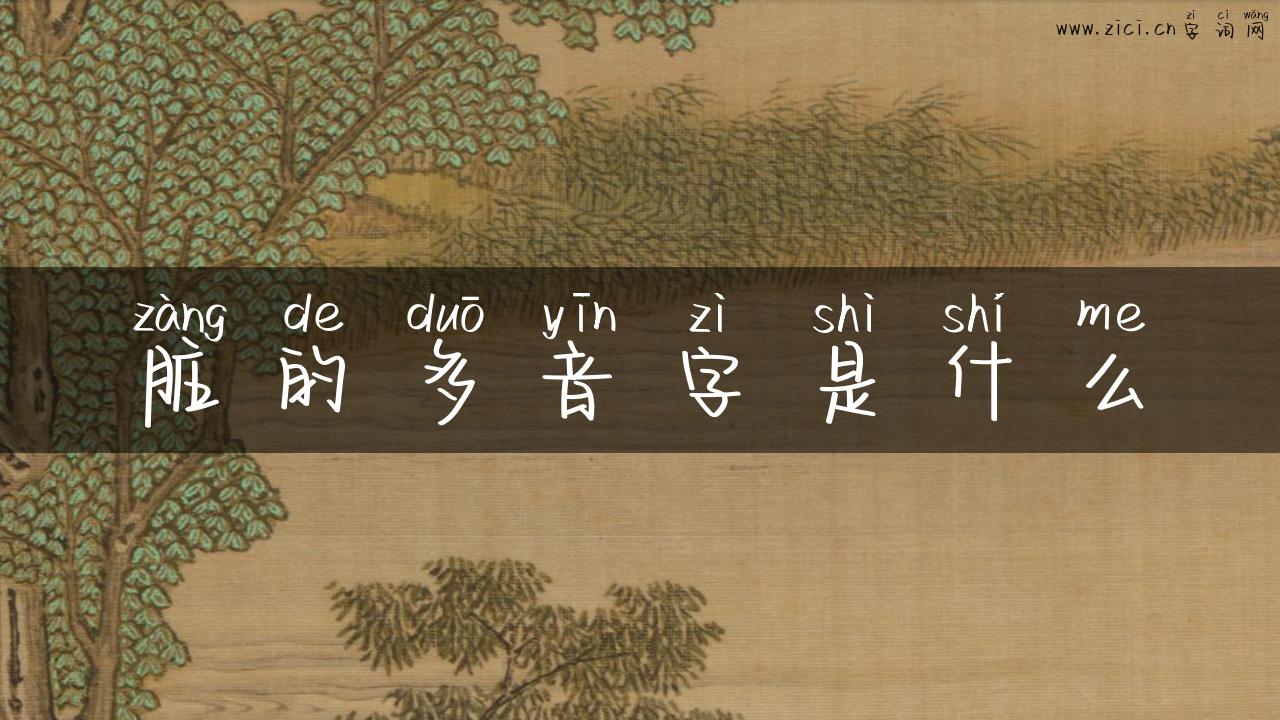 zì cí wǎng
www.zici.cn字词网
zàng de duō yīn zì shì shí me
脏的多音字是什么